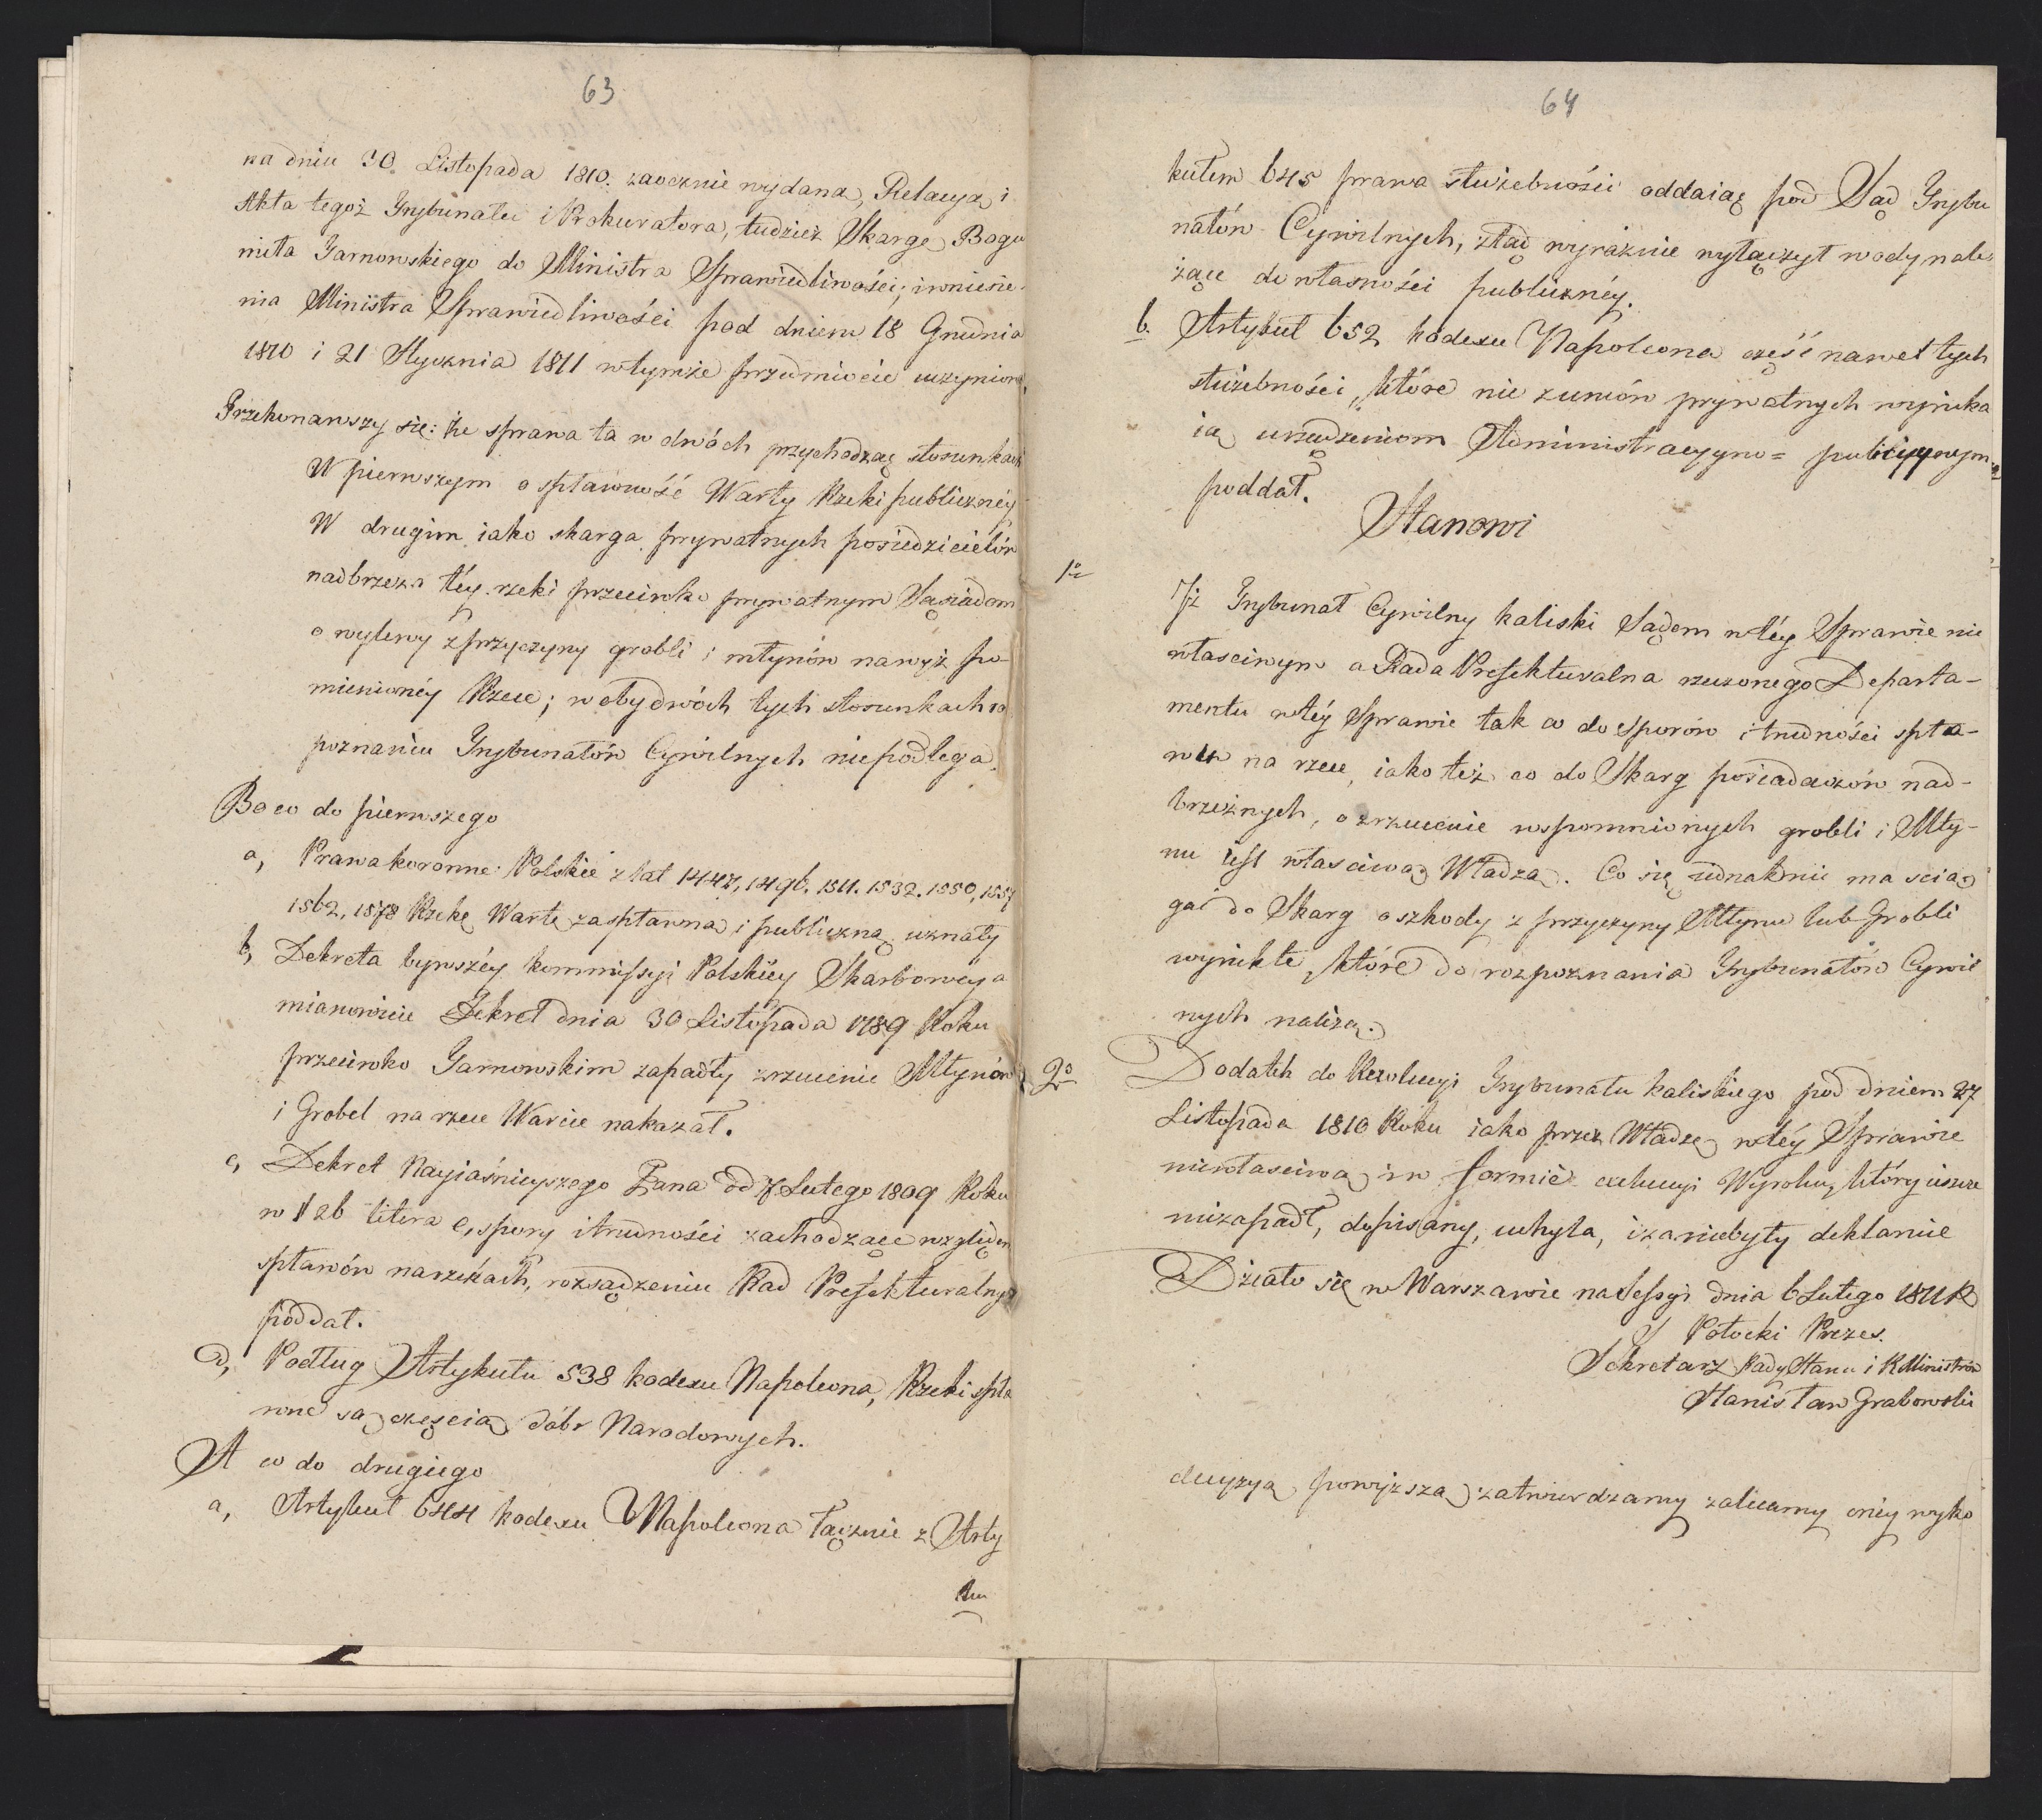 63
na dniu 30 Listopada 1810. zaocznie wydaną, Relacyą i
Akta tegoż Trybunału i Prokuratora, tudzież Skargę Bogu
miła Jarnowskiego do Ministra Sprawiedliwości; i wniesie-
nia Ministra Sprawiedliwości pod dniem 18 Grudnia
1810 i 21 Stycznia 1811 w tymże przedmiocie uczynione,
Przekonawszy się: że sprawa ta w dwóch przychodząc stosunkach
W pierwszym o spławność Warty Rzeki publicznéy
W drugim iako skarga prywatnych posiedzicielów
nadbrzeża téy rzeki przeciwko prywatnym Sąsiadom
o wylewy z przyczyny grobli i młynów na wyż po-
mienionéy Rzece; w obydwóch tych stosunkach ro
poznaniu Trybunałów Cywilnych niepodlega.
Bo co do pierwszego
a, Prawa koronne Polskie z lat 1447, 1496. 1511. 1532. 1550, 1557
1562, 1578 Rzekę Wartę za spławną i publiczną uznały
b, Dekreta bywszéy kommissyi Polskiey Skarbowey a
mianowicie Dekret dnia 30 Listopada 1789 Roku
przeciwko Jarnowskim zapadły zrzucenie Młynów
i Grobel na rzece Warcie nakazał.
c, Dekret Nayiaśnieyszego Pana dd 7 Lutego 1809 Roku
w § 26 litera e, spory i trudności zachodzące względem
spławów na rzekach, rozsądzeniu Rad Prefekturalnych
poddał.
d, Podług Artykułu 538 kodexu Napoleona, Rzeki spła
wne są częścią dóbr Narodowych.
A co do drugiego
a, Artykuł 644 kodexu Napoleona łącznie z Arty
ku
64
kułem 645 prawa służebności oddaiąc pod Sąd Trybu
nałów Cywilnych, ztąd wyraźnie wyłączył wody nale-
żące do własności publicznéy.
b. Artykuł 652 kodexu Napoleona część nawet tych
służebności, które nie z umów prywatnych wynika
ią urządzeniom Administracyyno = policyynym
poddał.
Stanowi
1o
Iż Trybunał Cywilny kaliski Sądem w téy Sprawie nie
właściwym a Rada Prefekturalna rzeczonego Departa-
mentu w téy Sprawie tak co do sporów i trudności spła-
wu na rzece, iako też co do Skarg posiadaczów nad-
brzeżnych, o zrzucenie wspomnionych grobli i Mły-
nu iest właściwą Władzą. Co się iednak nie ma ścią
gać do Skarg o szkody z przyczyny Młynu lub Grobli
wynikłe, które do rozpoznania Trybunałów Cywil
nych należą.
2o Dodatek do Rezolucyi Trybunału kaliskiego pod dniem 27
Listopada 1810 Roku iako przez Władzę w téy Sprawie
niewłaściwą i w formie exekucyi Wyroku, który ieszcze
niezapadł, dopisany, uchyla, i za niebyły deklaruie
Działo się w Warszawie na Sessyi dnia 6 Lutego 1811 R
Potocki Prezes.
Sekretarz Rady Stanu i R Ministrów
Stanisław Grabowski
decyzyą powyższą zatwierdzamy zalecamy oney wyko